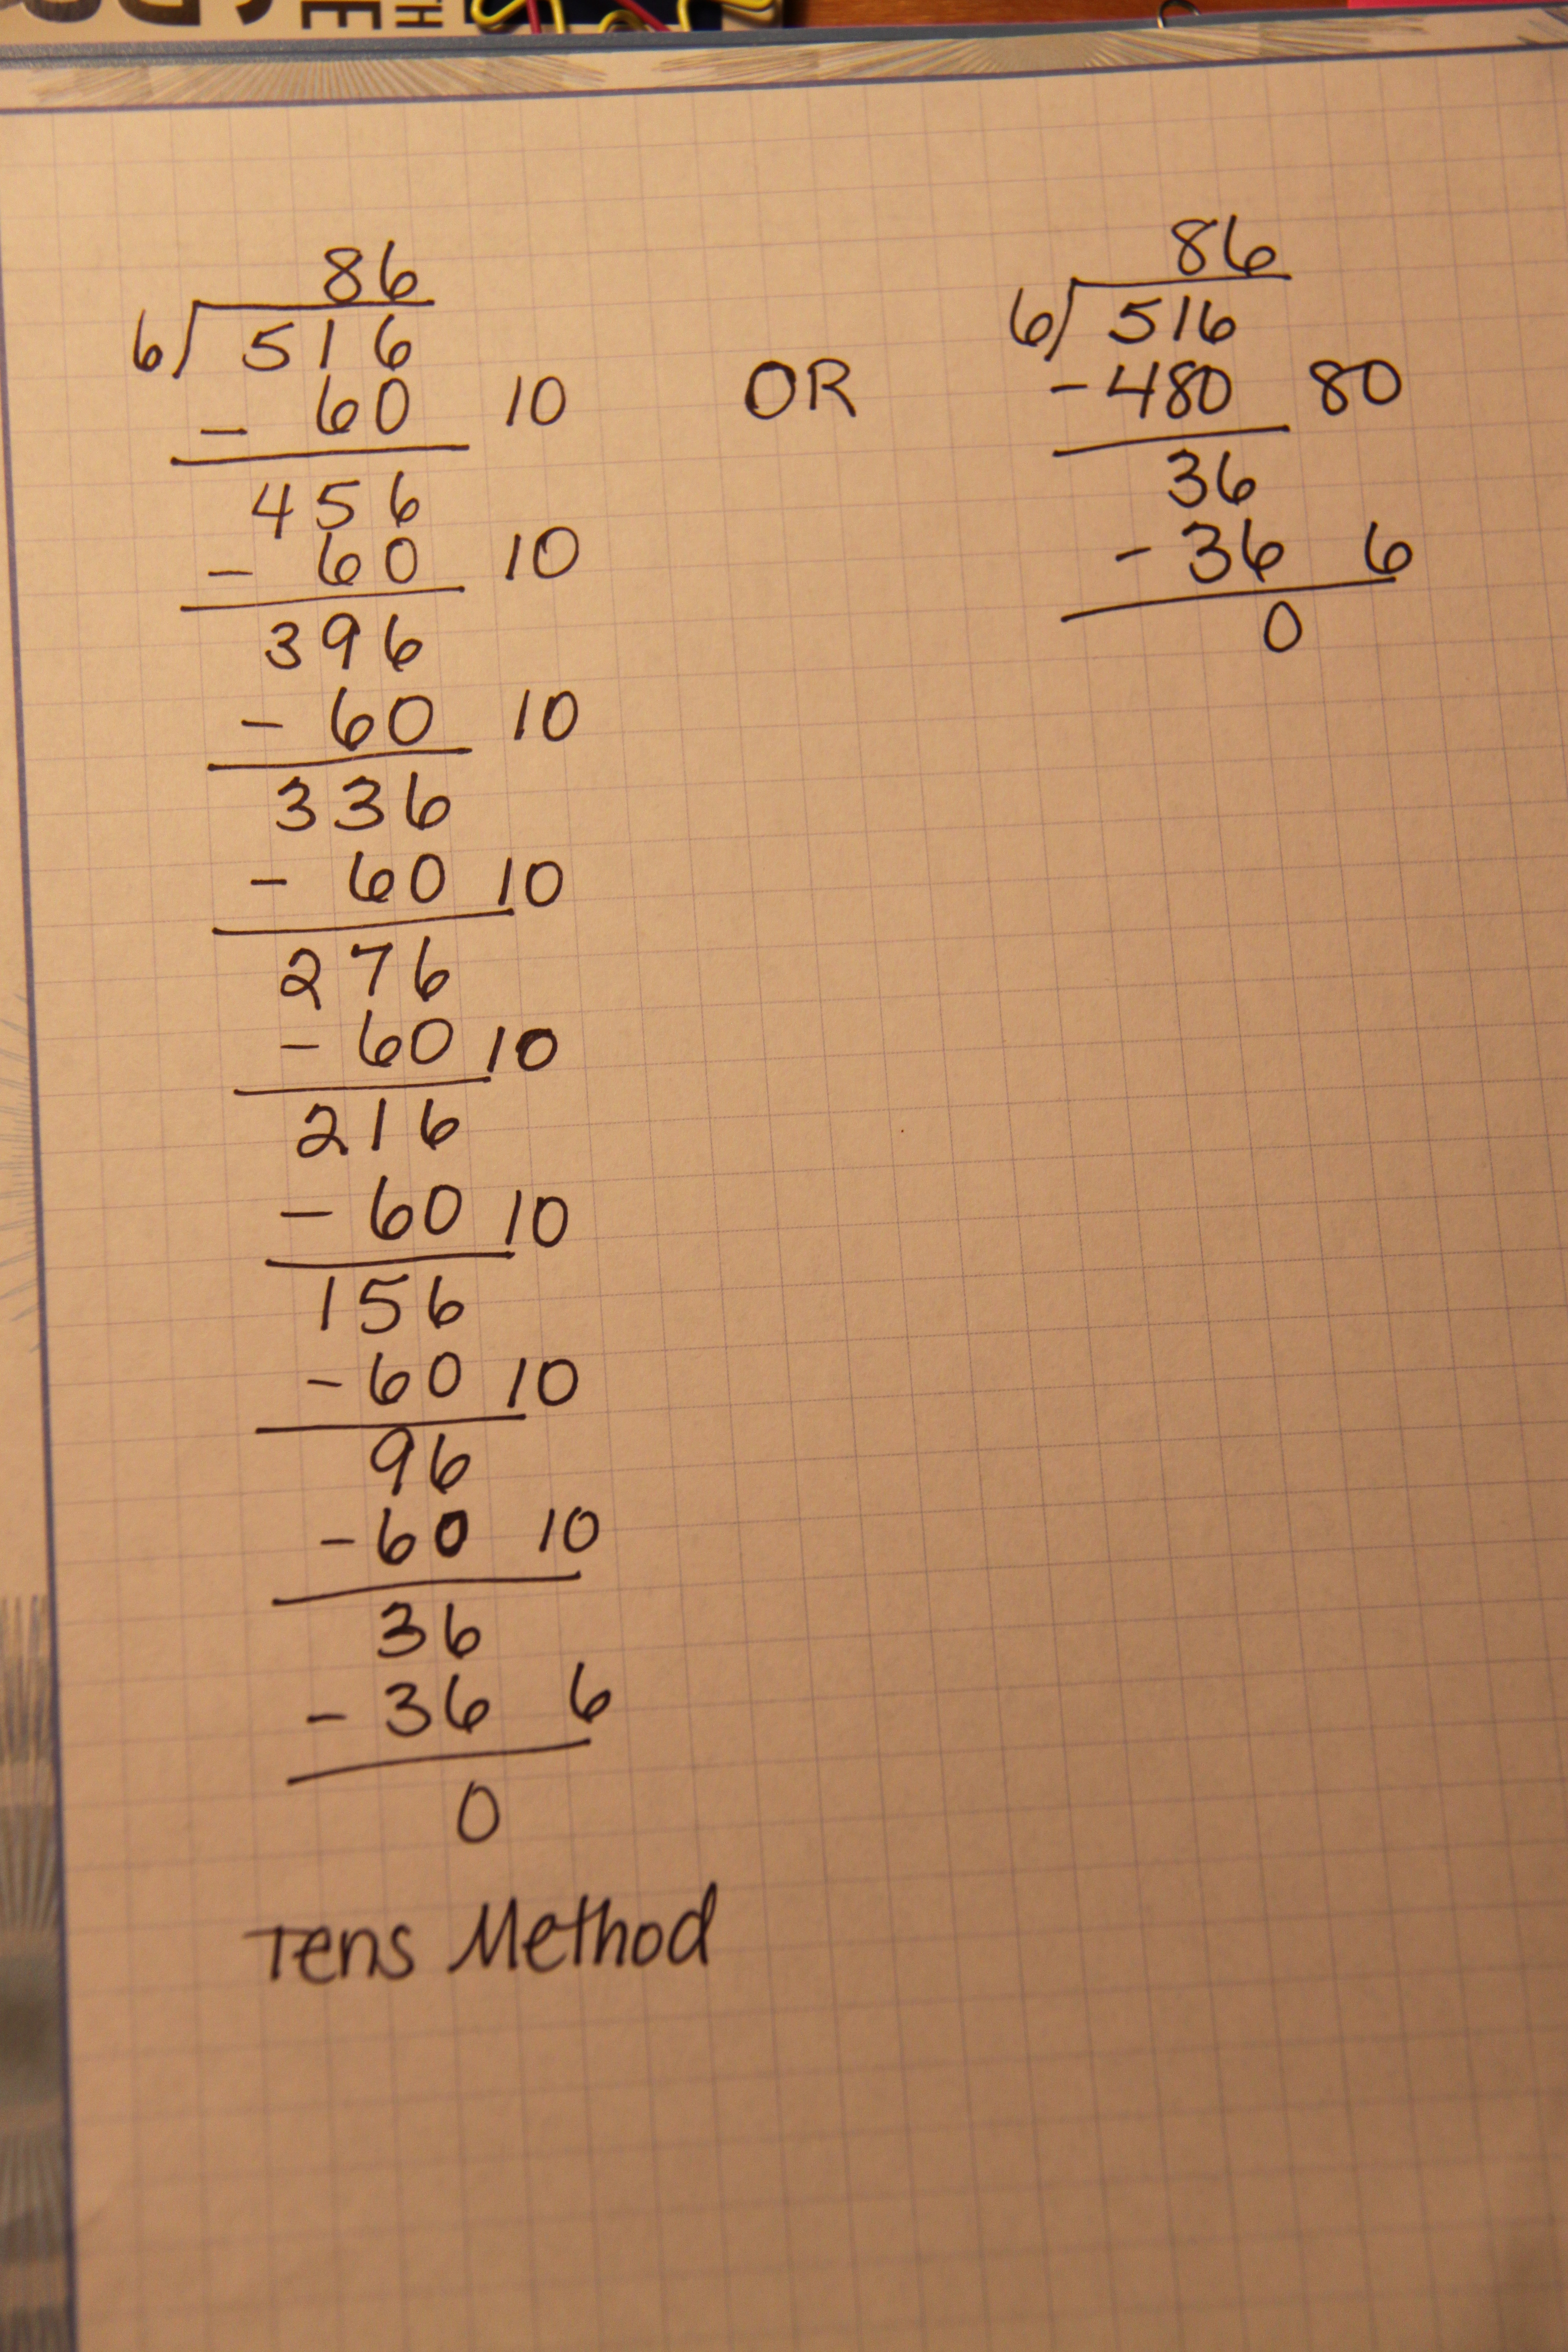 86
6) 516
- 60 10
456
- 60 10
396
- 60 10
336
- 60 10
276
- 60 10
216
- 60 10
156
- 60 10
96
- 60 10
36
- 36 6
0
Tens Method
OR
86
6) 516
- 480 80
36
- 36 6
0